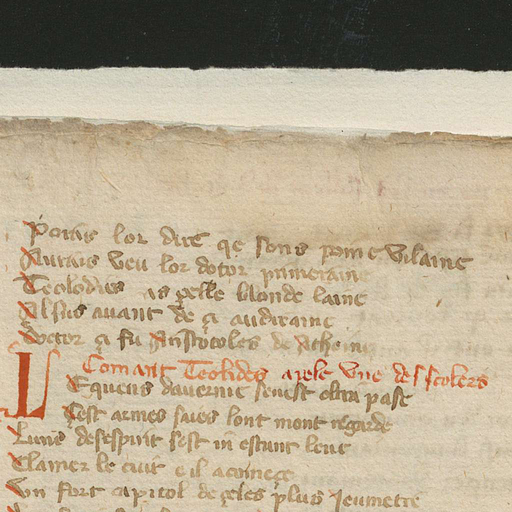 Poras lor dire qe sons point vilaine
Aurais veu lor dotor primeraine
Teolodies as qelle blonde laine
Alsus auant de ci audiraine
Doctor ci fu Aristotoles de Atheine
Comant Teolides apele vne des scolers
LEquens dauernie senest oltra pase
Cest armes saies lont mont regarde
Luns desespirit sest in estant leue
Clamer le cuit e il acomece
Vn fort capitol de celes plus Jeumetre